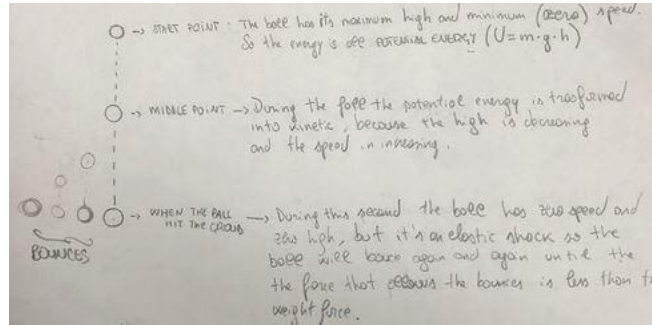 START POINT : The ball has its maximum high and minimum (zero) speed.
So the energy is all POTENTIAL ENERGY (U=m·g·h)
MIDDLE POINT → During the fall the potential energy is trasformed
into kinetic, because the high is decreasing
and the speed in increasing.
WHEN THE BALL → During this second the ball has zero speed and
HIT THE GROUND
zero high, but it's an elastic shock so the
BOUNCES
ball will bounce again and again until the
the force that allows the bounces is less than
weight force.